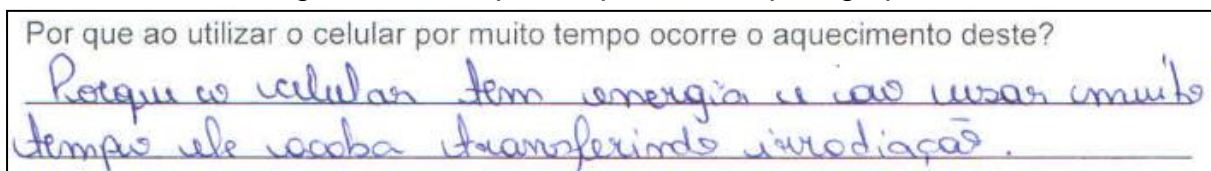 Por que ao utilizar o celular por muito tempo ocorre o aquecimento deste?
Porque o celular tem energia e ao usar muito
tempo ele acaba transferindo irradiação.